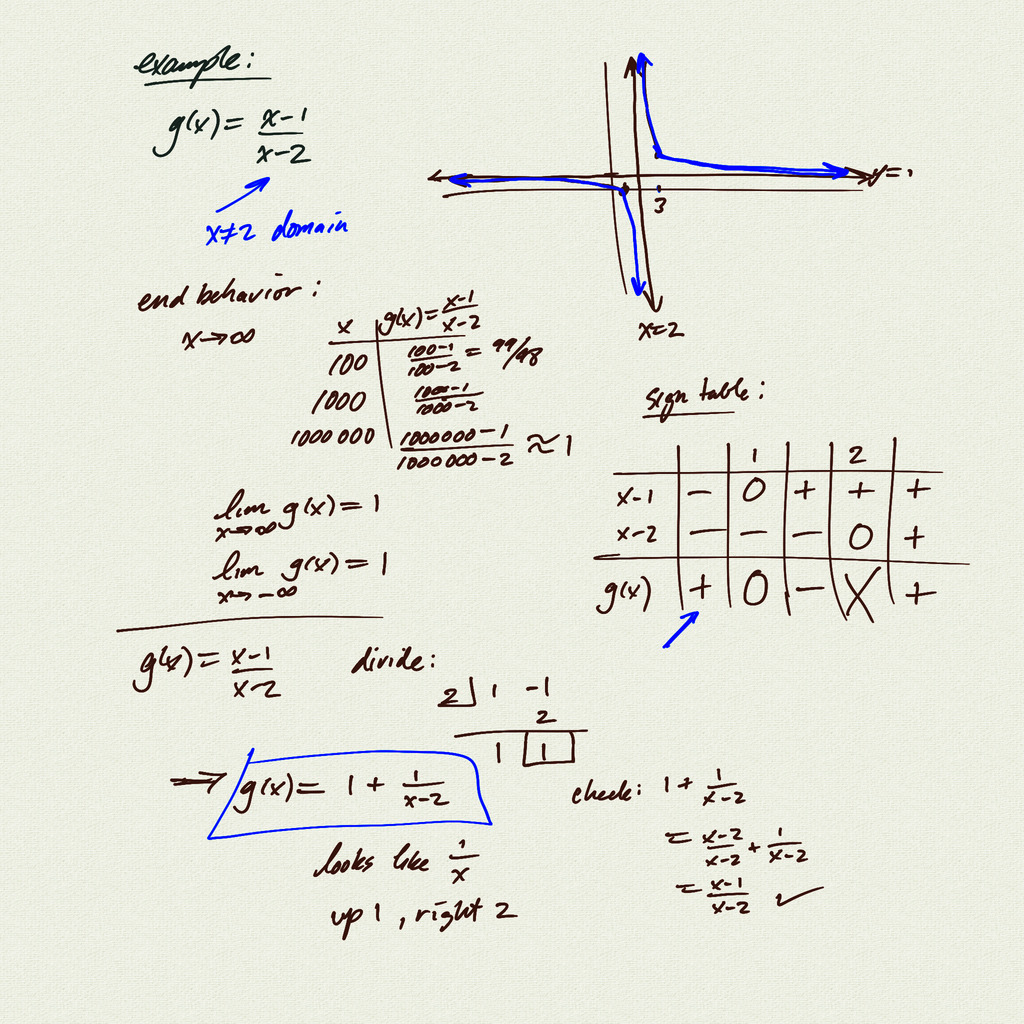 example:
g(x) = (x-1)/(x-2)
x≠2 domain
y=1
3
x=2
end behavior:
x→∞
x | g(x) = (x-1)/(x-2)
100 | (100-1)/(100-2) = 99/98
1000 | (1000-1)/(1000-2)
1000000 | (1000000-1)/(1000000-2) ≈ 1
lim x→∞ g(x) = 1
lim x→-∞ g(x) = 1
sign table:
1 2
x-1 | - | 0 | + | + | +
x-2 | - | - | - | 0 | +
g(x) | + | 0 | - | X | +
g(x) = (x-1)/(x-2)
divide:
2 | 1 -1
2
1 1
⇒ g(x) = 1 + 1/(x-2)
looks like 1/x
up 1, right 2
check: 1 + 1/(x-2)
= (x-2)/(x-2) + 1/(x-2)
= (x-1)/(x-2) ✓